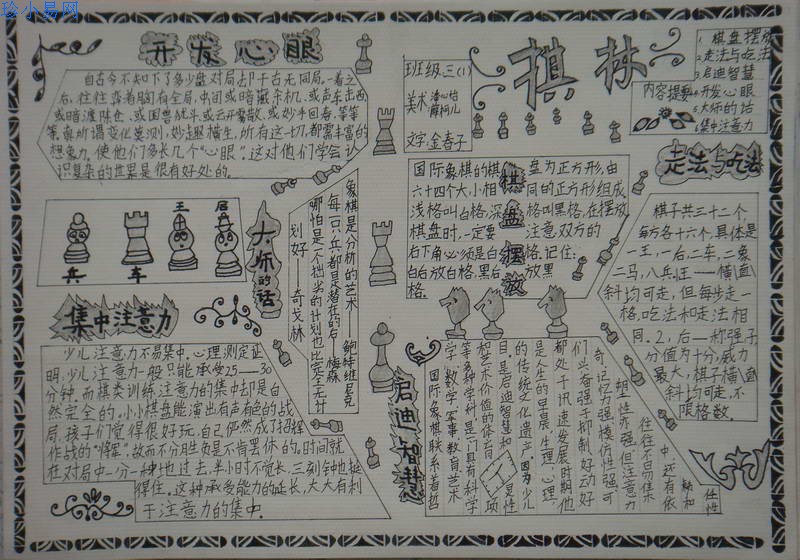 珍小易网
开发心眼
自古今不知下了多少盘对局却千古无同局,一着之
后,往往弈着胸有全局,
或暗渡陈仓、或困兽犹斗、或云开雾散、或妙手回春、等等
等、真所谓变化莫测,妙趣横生,所有这一切,都需丰富的
想象力。使他们多长几个“心眼”。这对他们学会认
识复杂的世界是很有好处的。
班级:三(1)
美术:
文字:金春子
棋林
1.棋盘摆放
2.走法与吃法
3.启迪智慧
内容提要
4.开发心眼
5.大师的话
6.集中注意力
王
后
兵
车
大师的话
象棋是分析的艺术——鲍特维尼克
每一只小兵都是潜在的后——梅森
哪怕是一个拙劣的计划也比完全无计
划好——奇戈林
棋盘摆放
国际象棋的棋盘为正方形,由
六十四个大小相同的正方形组成
浅格叫白格,深格叫黑格,在摆放
棋盘时,一定要注意,双方的
右下角必须是白格,记住:
白后放白格,黑后放黑
格。
走法与吃法
棋子共三十二个,
每方各十六个,具体是
一王,一后,二车,二象
二马,八兵,王——横直
斜均可走,但每步走一
格,吃法和走法相
同。2,后——称强子,
分值为十分,威力
最大,棋子横直
斜均可走,不
限格数。
集中注意力
少儿注意力不易集中。心理测定证
明:少儿注意力一般只能承受25——30
分钟,而棋类训练注意力的集中却是自
然完全的。小小棋盘能演出有声有色的战
局,孩子们觉得很好玩,自己俨然成了指挥
作战的“将军”,故而不分胜负是不肯罢休的。时间就
在对局中一分一秒地过去,半小时不觉长,三刻钟也挺
得住。这种承受能力的延长,大大有利
于注意力的集中。
启迪智慧
国际象棋联系着哲
学、数学、军事、教育、艺术
等多种学科,是一门具有科学
和艺术价值的体育项
目。是启迪智慧和灵性
的传统文化遗产,因为少儿
是人生的早晨,生理、心理,
都处于迅速发展时期,他
们兴奋强于抑制,好动好
奇,记忆力强,模仿性强,可
塑性亦强,但注意力
往往不易集
中,还有依
赖和
任性